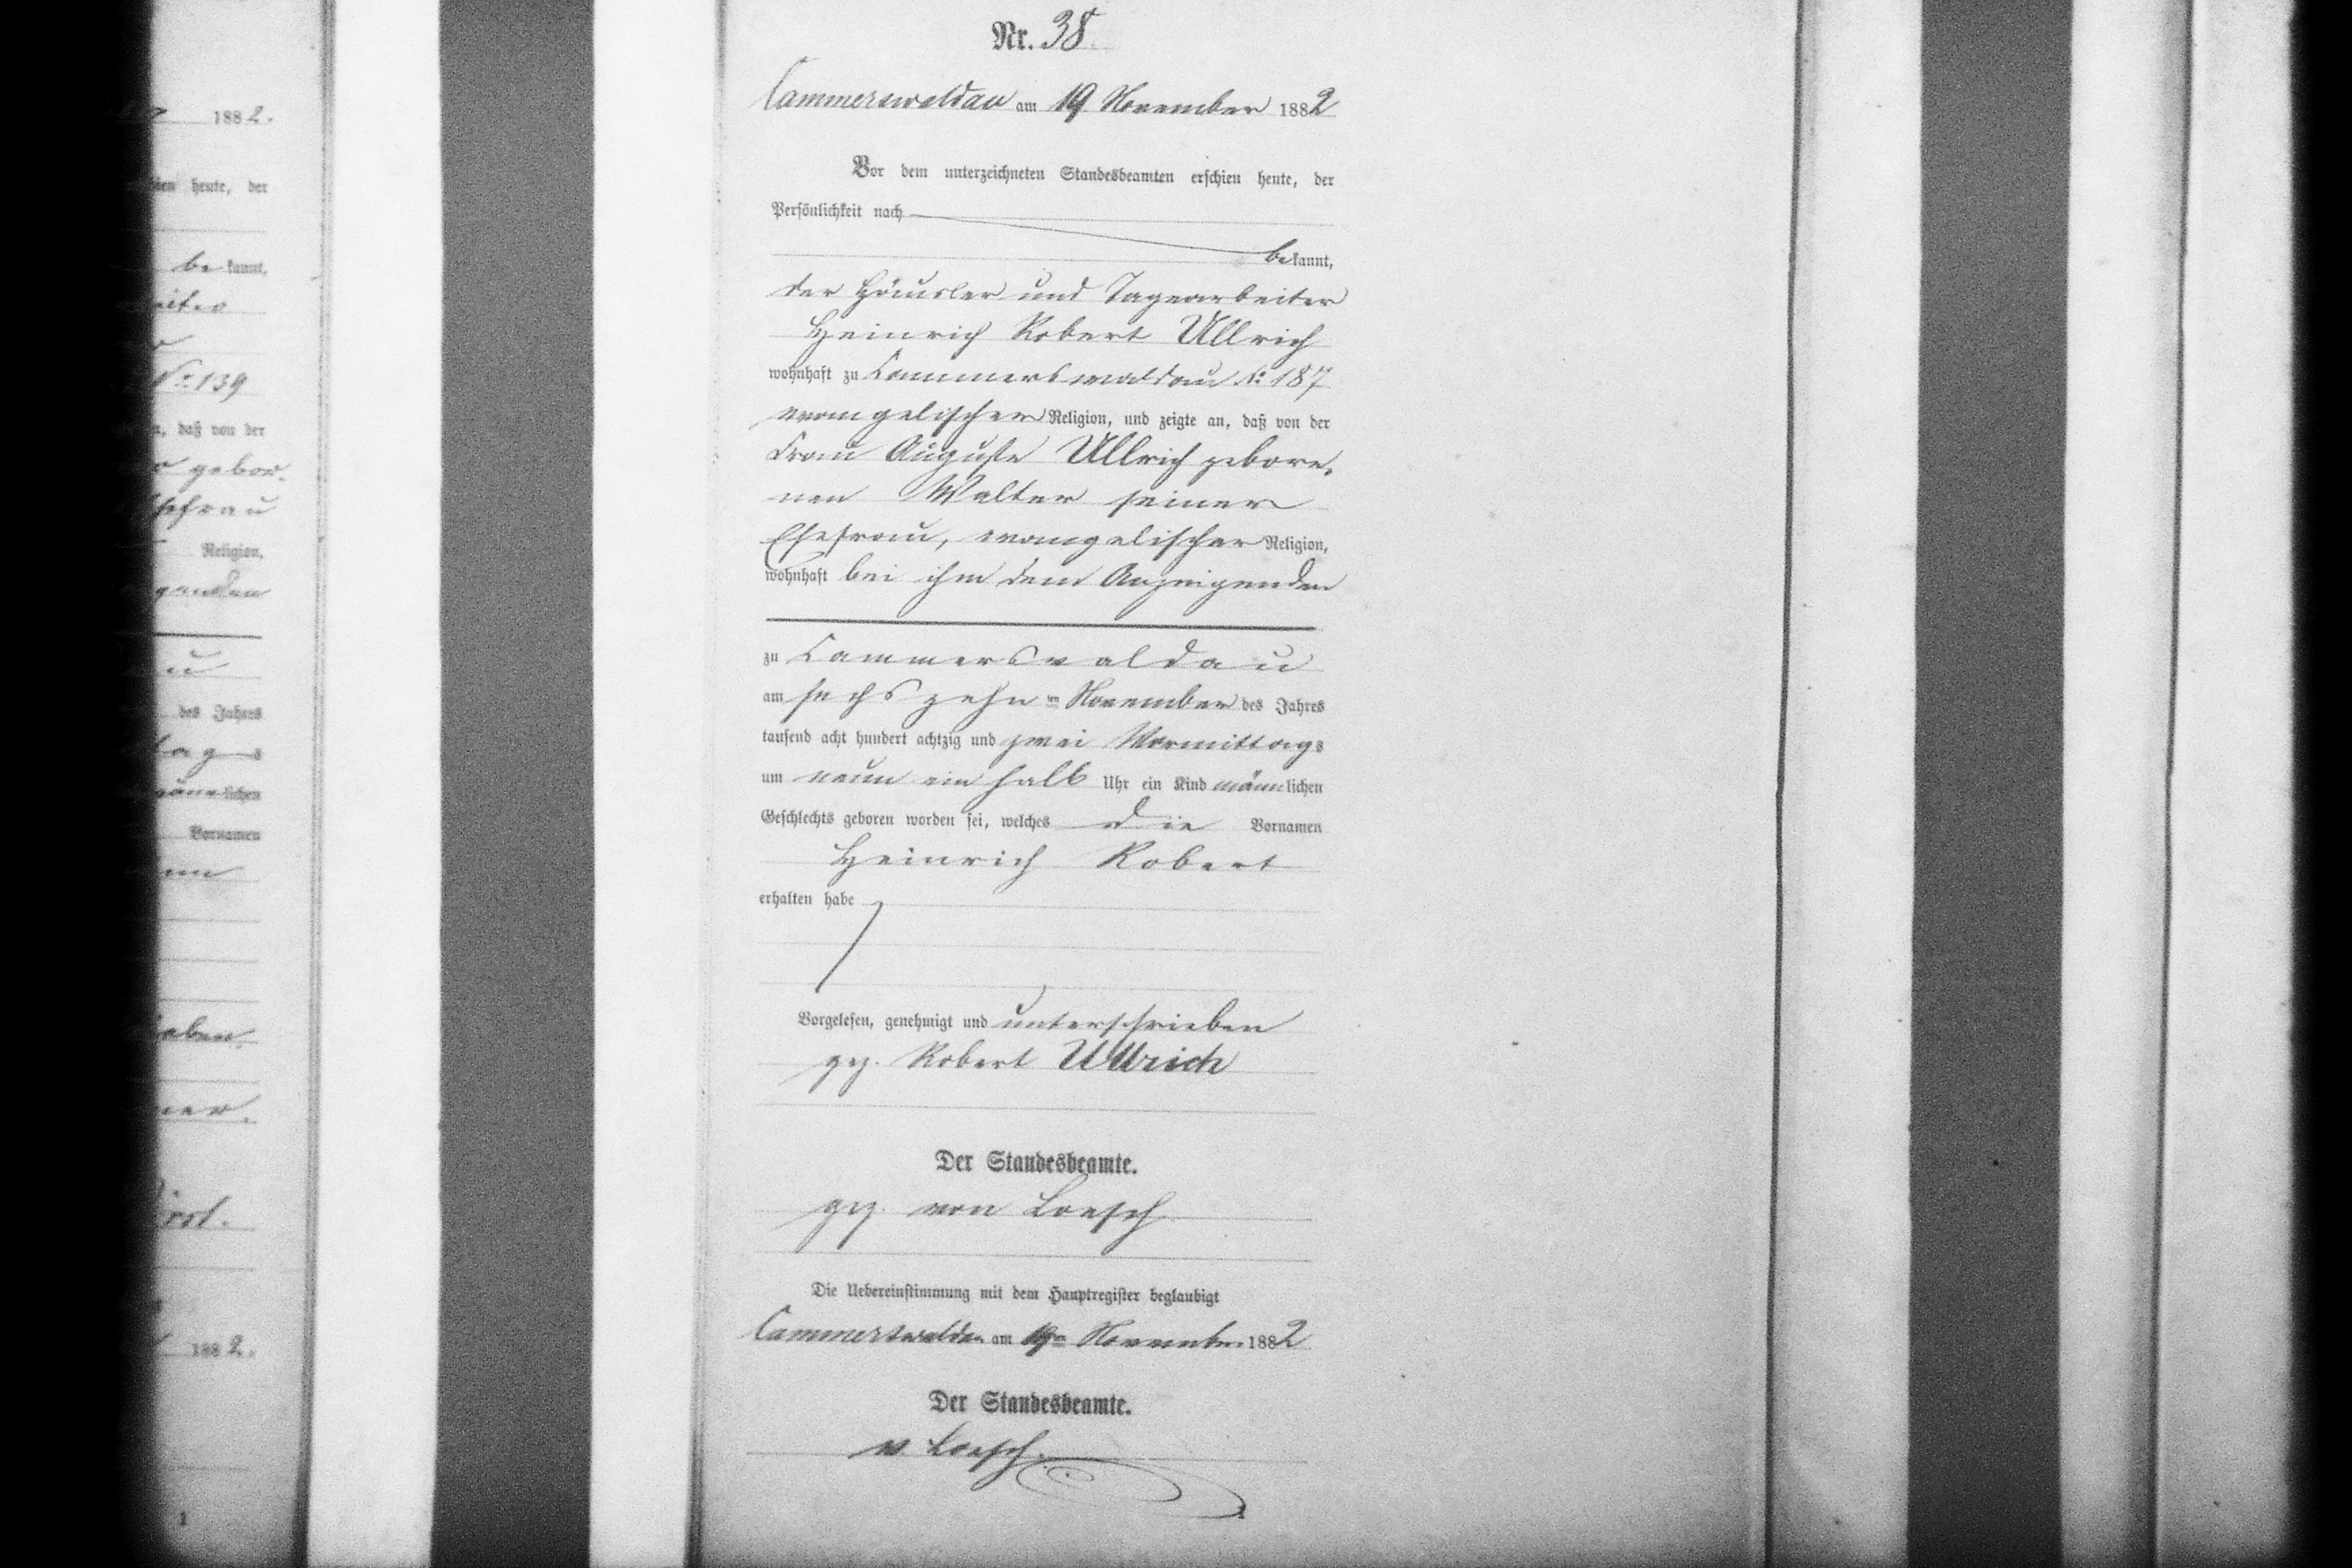 Nr. 38.
Cammerswaldau am 19 November 1882
Vor dem unterzeichneten Standesbeamten erschien heute, der
Persönlichkeit nach
bekannt,
der Häusler und Tagearbeiter
Heinrich Robert Ullrich
wohnhaft zu Cammerswaldau No 187
evangelischer Religion, und zeigte an, daß von der
Frau Auguste Ullrich gebore,
nen Walter seiner
Ehefrau, evangelischer Religion,
wohnhaft bei ihm dem Anzeigenden
zu Cammerswaldau
am sechszehnten November des Jahres
tausend acht hundert achtzig und zwei Vormittags
um neun ein halb Uhr ein Kind männlichen
Geschlechts geboren worden sei, welches die Vornamen
Heinrich Robert
erhalten habe
Vorgelesen, genehmigt und unterschrieben
gez. Robert Ullrich
Der Standesbeamte.
gez. von Loesch
Die Uebereinstimmung mit dem Hauptregister beglaubigt
Cammerswaldau am 19ten November 1882
Der Standesbeamte.
v. Loesch.
1882.
heute, der
bekannt,
No 139
daß von der
gebor.
Religion,
des Jahres
Vornamen
1882.
1